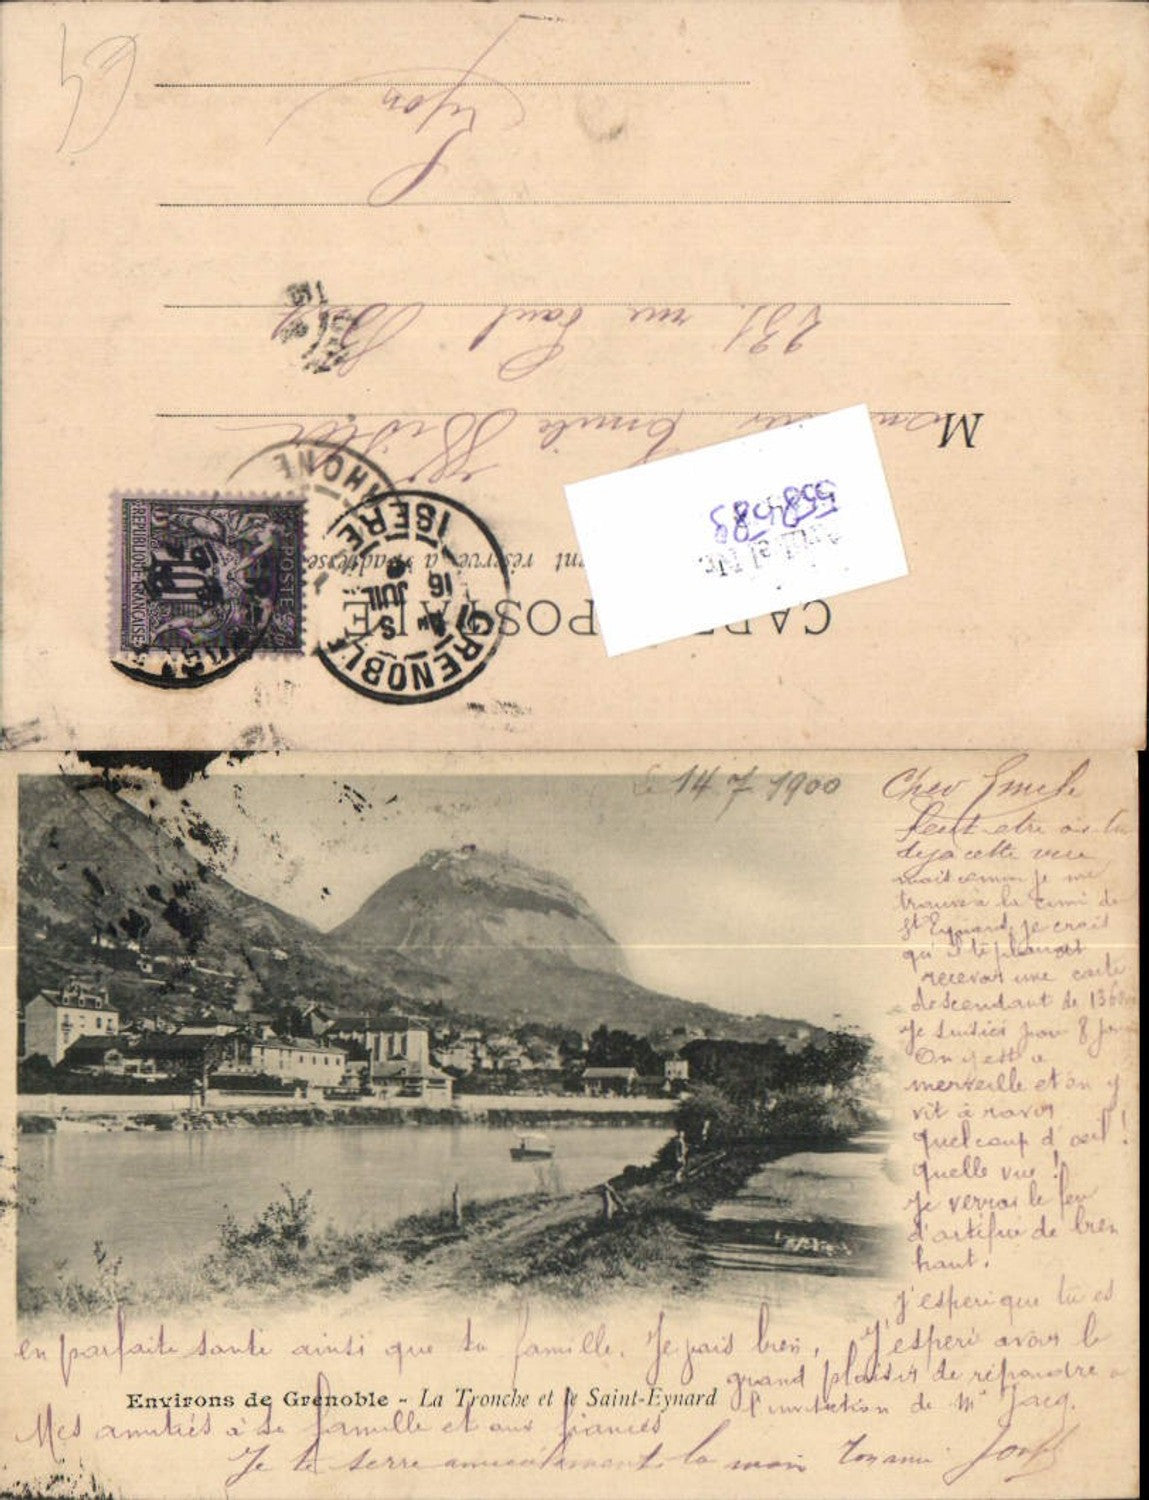 CARTE POSTALE
réservé à l'adresse
M
Emile
231. rue Paul Bert
Lyon
558589
GRENOBLE
ISERE
16
JUIL
RHONE
POSTES
10
REPUBLIQUE FRANCAISE
14 7 1900
Cher Emile
Peut etre as tu
deja cette vue
mais comme je me
trouve à la cime du
St Eynard, je crois
qu'il te plairait
recevoir une carte
descendant de
Je suis ici pour 8 jours
On y est a
merveille et on y
vit à ravir
quel coup d'œil !
quelle vue !
Je verrai le feu
d'artifice de bien
haut.
J'espère que tu es
en parfaite santé ainsi que ta famille. Je vais bien, J'espère avoir le
grand plaisir de répondre a
l'invitation de Mr Jacq.
Environs de Grenoble - La Tronche et le Saint-Eynard
Mes amitiés à ta famille et aux fiancés
Je te serre amicalement la main Ton ami